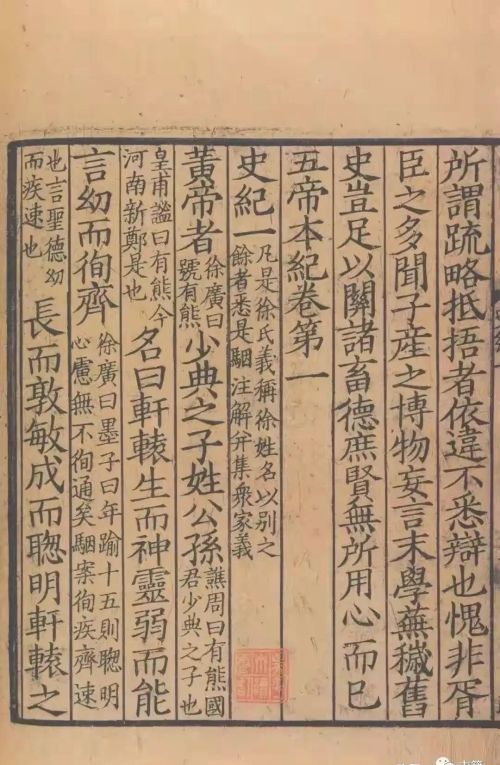 所謂疏略抵捂者依違不悉辯也愧非胥
臣之多聞子產之博物妄言末學蕪穢舊
史豈足以關諸畜德庶賢無所用心而已
五帝本紀卷第一
史紀一凡是徐氏義稱徐姓名以別之餘者悉是駰注解并集衆家義
黃帝者徐廣曰號有熊少典之子姓公孫譙周曰有熊國君少典之子也
皇甫謐曰有熊今河南新鄭是也名曰軒轅生而神靈弱而能
言幼而徇齊徐廣曰墨子曰年踰十五則聦明心慮無不徇通矣駰案徇疾齊速
也言聖德幼而疾速也長而敦敏成而聦明軒轅之